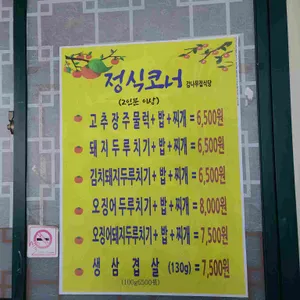 정식코너 감나무집식당
(2인분 이상)
고추장주물럭+밥+찌개=6,500원
돼지두루치기+밥+찌개=6,500원
김치돼지두루치기+밥+찌개=6,500원
오징어두루치기+밥+찌개=8,000원
오징어돼지두루치기+밥+찌개=7,500원
생삼겹살 (130g)=7,500원